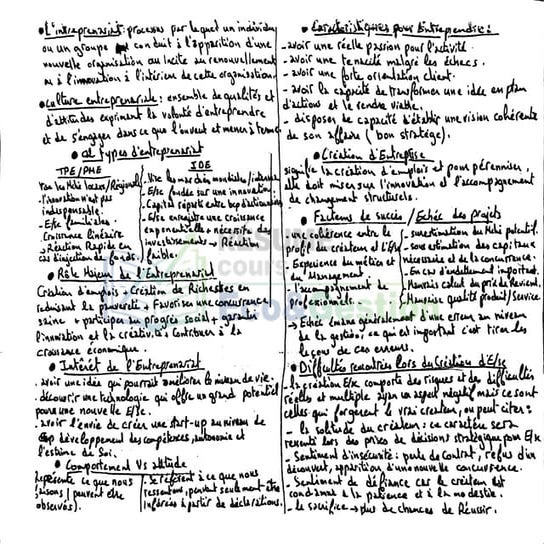 • L'intreprenariat: processus par lequel un individu
ou un groupe conduit à l'apparition d'une
nouvelle organisation ou incite au renouvellement
ou à l'innovation à l'intérieur de cette organisation.
• Culture entreprenariale: ensemble de qualités et
d'attitudes exprimant la volonté d'entreprendre
et de s'engager dans ce que l'on veut et mener à terme
• types d'entreprenariat
TPE/PME
- l'innovation n'est pas
indispensable.
- E/se familiales.
- Croissance linéaire
- Réaction Rapide en
cas d'injection de fonds.
IDE
- E/se fondée sur une innovation.
- Capital réparti entre bcp d'actionnaires
- E/se enregistre une croissance
exponentielle + nécessite
investissements → Réaction
faible.
• Rôle Majeur de l'Entreprenariat
Création d'emplois + Création de Richestes en
reduisant la pauvreté + Favoriser une concurrence
saine + participer au progrès social + garantir
l'innovation et la créativité + contribuer à la
croissance économique.
• Intérêt de l'Entreprenariat
- avoir une idée qui pourrait améliorer le niveau de vie.
- découvrir une technologie qui offre un grand potentiel
pour une nouvelle E/se.
- avoir l'envie de créer une start-up au niveau de
développement des compétences, autonomie et
l'estime de Soi.
• Comportement Vs attitude
Représente ce que nous
faisons (peuvent être
observés).
- Se réfèrent à ce que nous
ressentons, peuvent seulement être
inférées à partir de déclarations.
• Caractéristiques pour Entreprendre:
- avoir une réelle passion pour l'activité.
- avoir une tenacité malgré les échecs.
- avoir une forte orientation client.
- avoir la capacité de transformer une idée en plan
d'actions et le rendre viable.
- disposer de capacité d'établir une vision cohérente
de son affaire (bon stratège).
• Création d'Entreprise
signifie la création d'emplois et pour pérenniser,
elle doit miser sur l'innovation et l'accompagnement
de changement structurels.
• Facteurs de succès / Echec des projets
- une cohérence entre le
profil du créateur et l'E/se
- Expérience du métier et
du Management.
- l'accompagnement de
professionnels.
- surestimation du Mché potentiel.
- sous estimation des capitaux
nécessaire et de la concurrence.
- En cas d'endettement important.
- Mauvais calcul du prix de Revient.
- Mauvaise qualité produit/Service.
→ Echec émane généralement d'un erreur au niveau
de la gestion, ce qui est important c'est tirer les
leçons de ces erreurs.
• Difficultés rencontrées lors du Création d'E/se
- la création E/se comporte des risques et des difficultés
réelles et multiple ayant un aspect négatif mais ce sont
celles qui forgèrent le vrai créateur, on peut citer:
- la solitude du créateur: ce caractère sera
ressenti lors des prises de décisions stratégique pour E/se
- Sentiment d'insécurité: perte de contrat, refus d'un
découvert, apparition d'une nouvelle concurrence.
- Sentiment de défiance car le créateur est
condamné à la patience et à la modestie.
- le sacrifice → plus de chances de Réussir.
RESUME
cours
Eco&Gestion